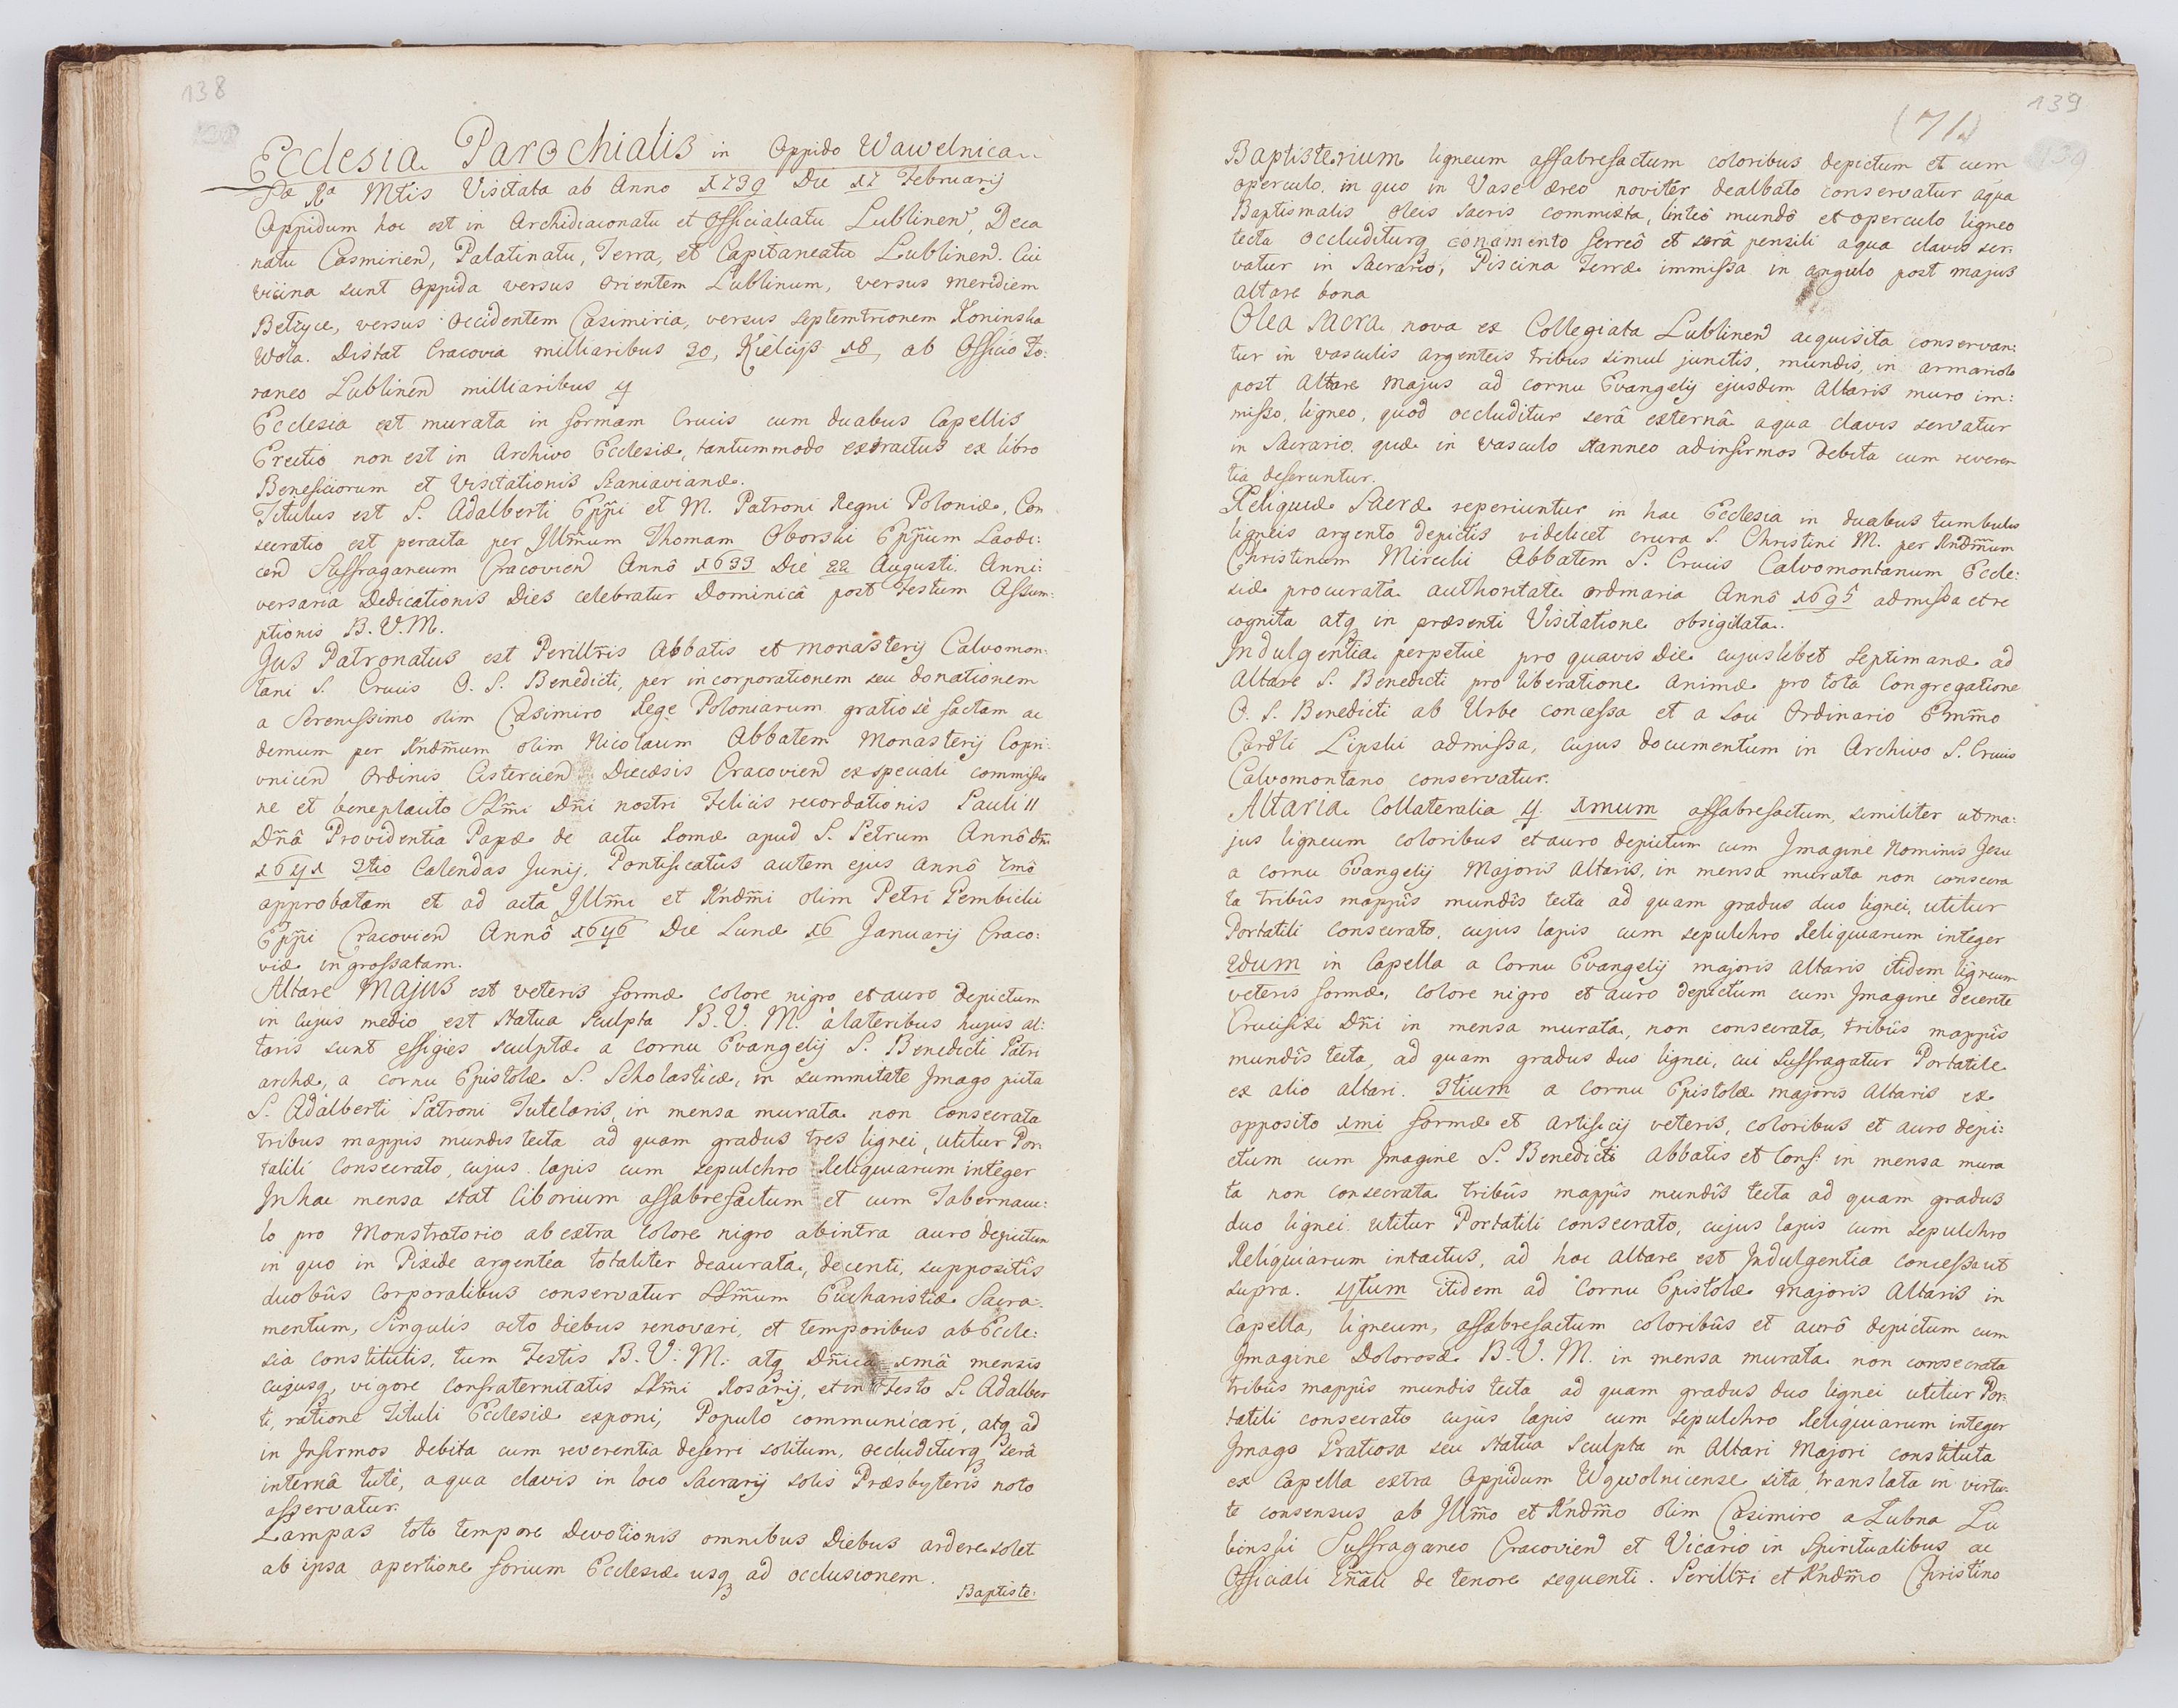 138
Ecclesia Parochialis in Oppido Wawelnica
Sæ Ræ Mtis Visitata ab Anno 1739 Die 17 Februarij
Oppidum hoc est in Archidiaconatu et Officialiatu Lublinen, Deca
natu Casmirien, Palatinatu, Terra, et Capitaneatu Lublinen. Cui
vicina sunt Oppida versus Orientem Lublinum, versus meridiem
Betzyce, versus Occidentem Casimiria, versus Septemtrionem Koninska
Wola. Distat Cracovia milliaribus 30, Kielcijs 18, ab Officio Fo:
raneo Lublinen milliaribus 4
Ecclesia est murata in formam Crucis cum duabus Capellis
Erectio non est in Archivo Ecclesiæ, tantummodo extractus ex libro
Beneficiorum et Visitationis Szaniavianæ.
Titulus est S. Adalberti Eppi et M. Patroni Regni Poloniæ, Con
secratio est peracta per Illm̃um Thomam Oborski Epp̃um Laodi:
cen Suffraganeum Cracovien Annô 1633 Die 22 Augusti. Anni:
versaria Dedicationis Dies celebratur Dominicâ post Festum Assum:
ptionis B. V. M.
Jus Patronatus est Perilltris Abbatis et monasterij Calvomon:
tani S. Crucis O. S. Benedicti, per incorporationem seu donationem
a Serenissimo olim Casimiro Rege Poloniarum gratiosè factam ac
demum per Rndm̃um olim Nicolaum Abbatem Monasterij Copri:
vnicen Ordinis Cistercien Diæcesis Cracovien ex speciali commissio
ne et beneplacito SSm̃i Dñi nostri Felicis recordationis Pauli II
Dñâ Providentia Papæ de actu Romæ apud S. Petrum Annô Dni
1641 3tio Calendas Junij, Pontificatûs autem ejus annô 7mô
approbatam et ad acta Illm̃i et Rndm̃i olim Petri Gembicki
Epp̃i Cracovien Annô 1646 Die Lunæ 16 Januarij Craco:
viæ ingrossatam.
Altare Majus est veteris formæ colore nigro et auro depictum
in cujus medio est Statua Sculpta B. V. M. à lateribus hujus al:
taris sunt effigies sculptæ a cornu Evangelij S. Benedicti Patri
archæ, a cornu Epistolæ S. Scholasticæ, in summitate Jmago picta
S. Adalberti Patroni Tutelaris, in mensa murata non consecrata
tribus mappis mundis tecta ad quam gradus tres lignei, utitur Por
tatili consecrato, cujus lapis cum sepulchro Reliquiarum integer
Jn hac mensa stat Ciborium assabrefactum et cum Tabernacu:
lo pro Monstratorio ab extra colore nigro ab intra auro depictum
in quo in Pixide argentea totaliter deaurata, decenti, suppositis
duobûs Corporalibus conservatur SSm̃um Eucharistiæ Sacra:
mentum, Singulis octo diebus renovari, et temporibus ab Eccle:
sia constitutis, tum Festis B. V. M. atq Dñicâ 1mâ mensis
cujusq, vigore Confraternitatis SSm̃i Rosarij, et in Festo S. Adalber
ti, ratione Tituli Ecclesiæ exponi, Populo communicari, atq ad
in Jnfirmos debita cum reverentia deferri solitum, occluditurq serâ
internâ tutè, a qua clavis in loco Sacrarij solis Præsbyteris noto
asservatur.
Lampas toto tempore Devotionis omnibus Diebus ardere solet
ab ipsa apertione forium Ecclesiæ usq ad occlusionem.
Baptiste:
139
(71)
Baptisterium ligneum assabrefactum coloribus depictum et cum
operculo, in quo in Vase æreo noviter dealbato conservatur aqua
Baptismalis Oleis sacris commixta, linteô mundô et operculo ligneo
tecta occluditurq conamento ferreô et serâ pensili a qua clavis ser:
vatur in Sacrario, Piscina Terræ immissa in angulo post majus
altare bona
Olea Sacra nova ex Collegiata Lublinen acquisita conservan:
tur in vasculis argenteis tribus simul junctis, mundis, in armariolo
post Altare Majus ad cornu Evangelij ejusdem Altaris muro im:
misso, ligneo, quod occluditur serâ externâ a qua clavis servatur
in Sacrario. quæ in vasculo stanneo ad infirmos debita cum reveren
tia deferuntur.
Reliquiæ Sacræ reperiuntur in hac Ecclesia in duabus tumbulis
ligneis argento depictis videlicet crura S. Christini M. per Rndm̃um
Christinum Mirecki Abbatem S. Crucis Calvomontanum Eccle:
siæ procurata authoritate ordinaria Annô 1695 admissa et re
cognita atq in præsenti Visitatione obsigillata.
Jndulgentia perpetuè pro quavis Die cujuslibet septimanæ ad
Altare S. Benedicti pro liberatione animæ pro tota Congregatione
O. S. Benedicti ab Urbe concessa et a Loci Ordinario Emm̃o
Cardli Lipski admissa, cujus documentum in Archivo S. Crucis
Calvomontano conservatur.
Altaria Collateralia 4. 1mum assabrefactum, similiter ut ma:
jus ligneum coloribus et auro depictum cum Jmagine Nominis Jesu
a cornu Evangelij Majoris Altaris, in mensa murata non consecra
ta tribûs mappîs mundîs tecta ad quam gradus duo lignei, utitur
Portatili consecrato, cujus lapis cum sepulchro Reliquiarum integer
2dum in Capella a Cornu Evangelij majoris altaris itidem ligneum
veteris formæ, colore nigro et auro depictum cum Jmagine decente
Crucifixi Dñi in mensa murata, non consecrata, tribûs mappîs
mundîs tecta, ad quam gradus duo lignei, cui suffragatur Portatile
ex alio altari. 3tium a cornu Epistolæ majoris Altaris ex
opposito 1mi formæ et artificij veteris, coloribus et auro depi:
ctum cum Jmagine S. Benedicti Abbatis et Conf: in mensa mura
ta non consecrata tribûs mappîs mundîs tecta ad quam gradus
duo lignei. utitur Portatili consecrato, cujus lapis cum sepulchro
Reliquiarum intactus, ad hoc altare est Jndulgentia concessa ut
supra. 4tum itidem ad Cornu Epistolæ Majoris Altaris in
Capella, ligneum, assabrefactum coloribûs et aurô depictum cum
Jmagine Dolorosæ B. V. M. in mensa murata non consecrata
tribûs mappîs mundis tecta ad quam gradus duo lignei utitur Por:
tatili consecrato cujus lapis cum sepulchro Reliquiarum integer
Jmago Gratiosa seu Statua Sculpta in Altari Majori constituta
ex Capella extra Oppidum Wąwolnicense sita, translata in virtu:
te consensus ab Jllm̃o et Rndm̃o olim Casimiro a Łubna Łu
binski Suffraganeo Cracovien et Vicario in Spiritualibus ac
Officiali Gñali de tenore sequenti. Perilltri et Rndm̃o Christino